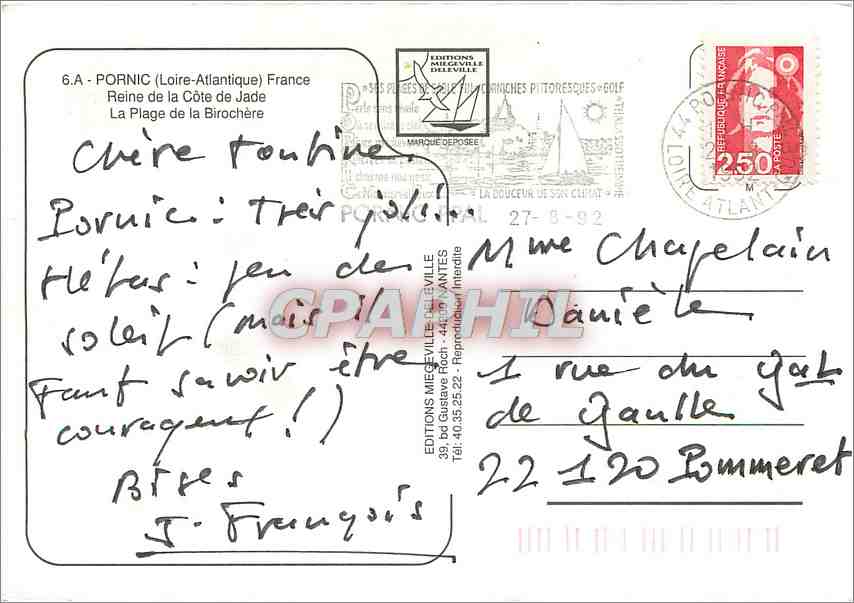 6.A - PORNIC (Loire-Atlantique) France
Reine de la Côte de Jade
La Plage de la Birochère
EDITIONS
MIEGEVILLE
DELEVILLE
MARQUE DEPOSÉE
CORNICHES PITTORESQUES * GOLF
LA DOUCEUR DE SON CLIMAT
PORNIC PPAL 27-8-92
44 PORNIC
LOIRE ATLANTIQUE
REPUBLIQUE FRANÇAISE
2,50
LA POSTE
M
Chère tontine.
Pornic : très joli...
Hélas : peu de
soleil (mais il
faut savoir être
courageux !)
Bises
J-François
EDITIONS MIEGEVILLE DELEVILLE
39, bd Gustave Roch - 44200 NANTES
Tél: 40.35.25.22 - Reproduction Interdite
Mme Chapelain
Danièle
1 rue du Gal
de Gaulle
22 120 Pommeret
CPARHIL